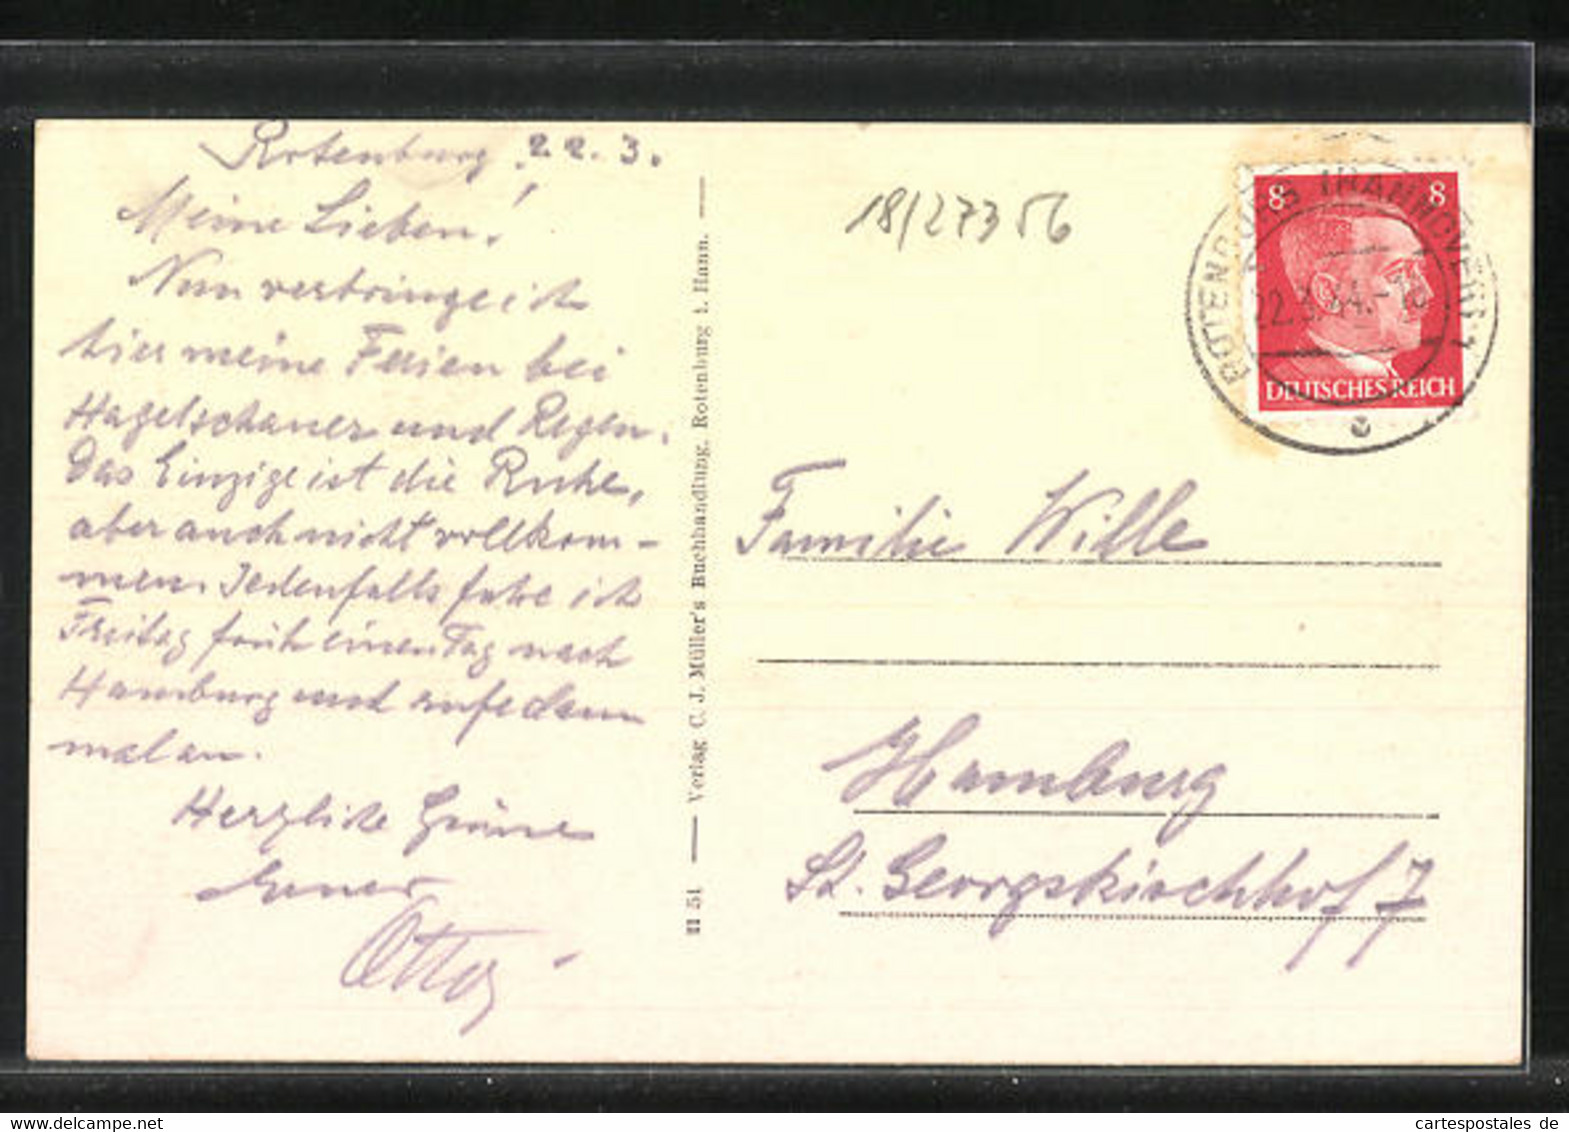 Rotenburg, 22.3.
Meine Lieben!
Nun verbringe ich
hier meine Ferien bei
Hagelschauer und Regen.
Das Einzige ist die Ruhe,
aber auch nicht vollkom-
men. Jedenfalls fahre ich
Freitag früh einen Tag nach
Hamburg und rufe dann
mal an.
Herzliche Grüsse
Euer
Otto
Verlag C. J. Müller's Buchhandlung, Rotenburg i. Hann.
H 51
18/27356
8 8
DEUTSCHES REICH
ROTENBURG (HANNOVER) 1
22.3.44.-18
Familie Wille
Hamburg
St. Georgskirchhof 7
cartespostales de